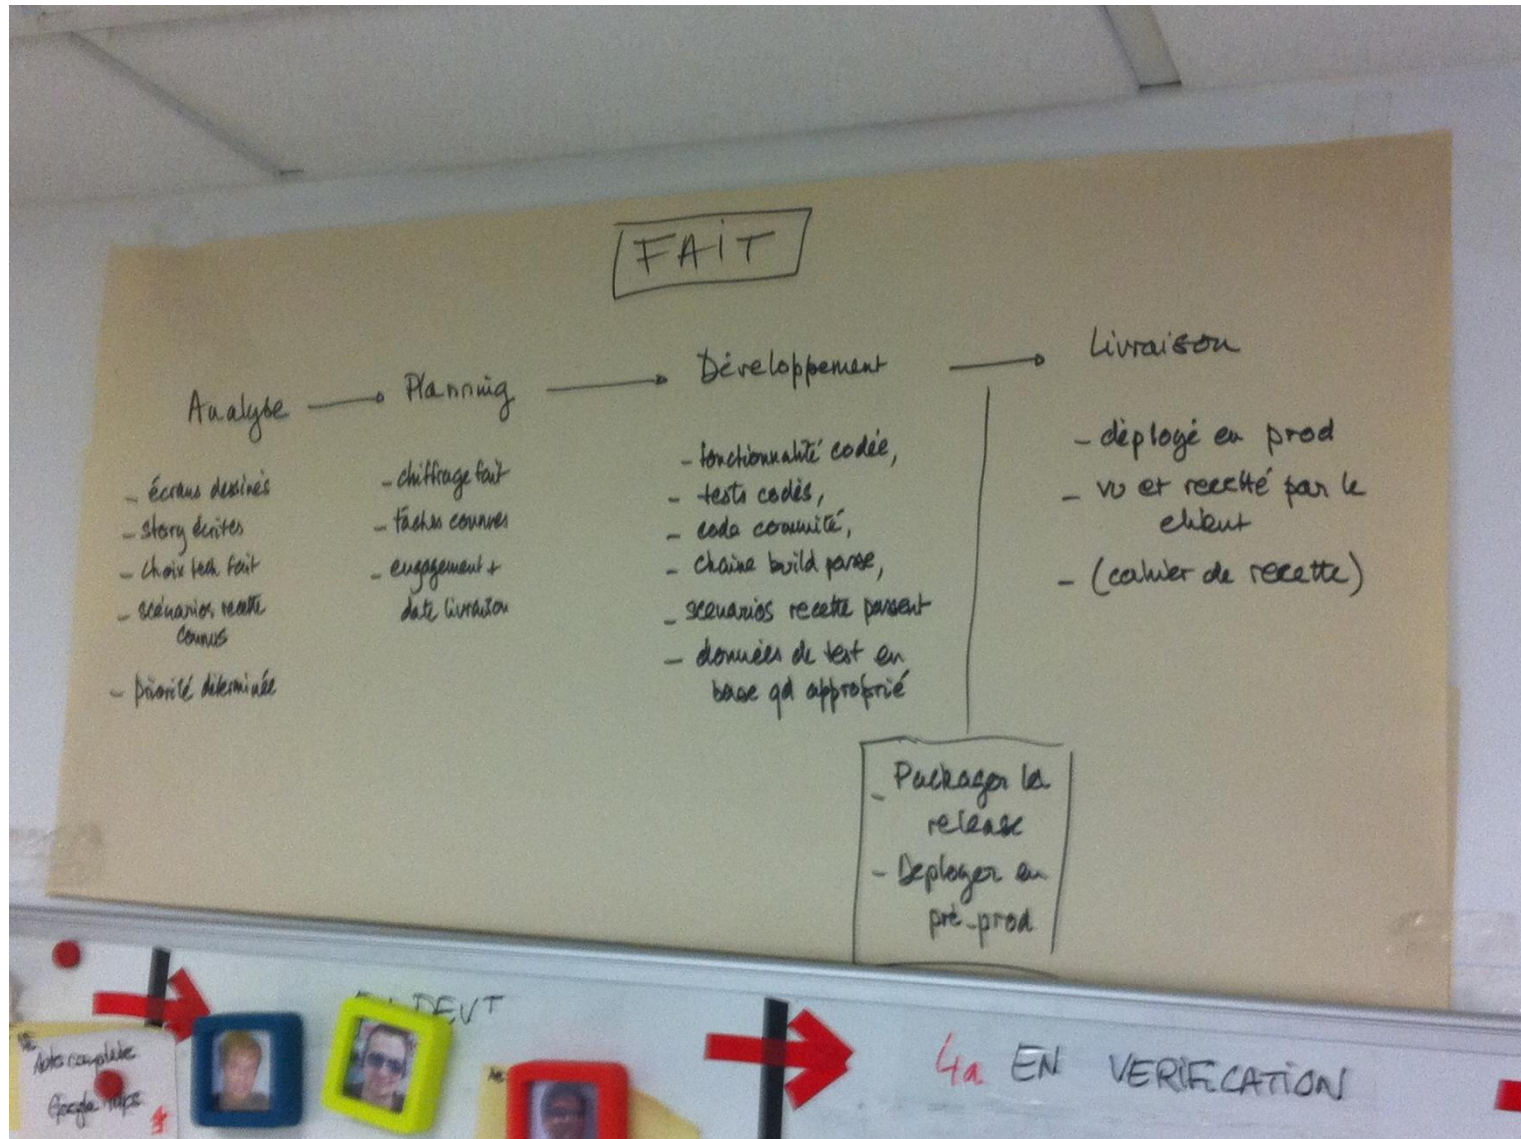 FAIT
Analyse
Planning
Développement
Livraison
- écrans dessinés
- story écrites
- choix tech fait
- scénarios recette
connus
- priorité déterminée
- chiffrage fait
- tâches connues
- engagement +
date livraison
- fonctionnalité codée,
- tests codés,
- code commité,
- chaine build passe,
- scenarios recette passent
- données de test en
base qd approprié
- déployé en prod
- vu et recetté par le
client
- (cahier de recette)
- Packager la
release
- Deployer en
pré-prod
DEVT
4a EN VERIFICATION
Auto complete
Google Maps